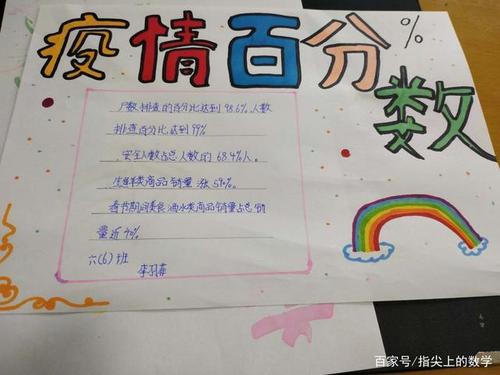 疫情百分数
%
户数排查的百分比达到98.6%人数
排查百分比达到99%
安全人数占总人数的68.4%人。
生鲜类商品销量涨59%。
春节期间美食酒水类商品销量占总销
量近40%
六(6)班
百家号/指尖上的数学